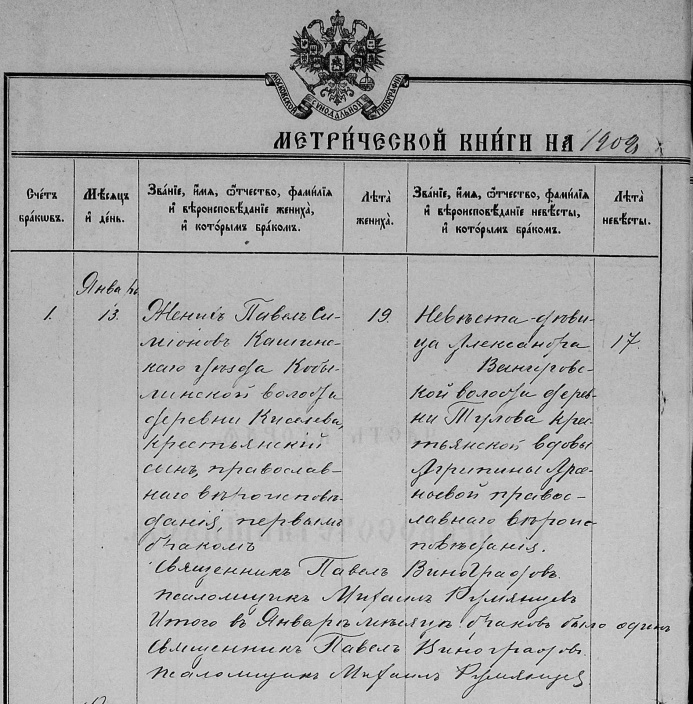 МОСКОВСКОЙ СѴНОДАЛЬНОЙ ТИПОГРАФІИ
МЕТРИ́ЧЕСКОЙ КНИ́ГИ НА 1908
Сче́тъ бра́кѡвъ.
Мѣ́сяцъ и҆ де́нь.
Зва́нїе, и҆́мя, ѻ҆́тчество, фами́лїя и҆ вѣроисповѣ́данїе жениха̀, и҆ кото́рымъ бра́комъ.
Лѣ́та жениха̀.
Зва́нїе, и҆́мя, ѻ҆́тчество, фами́лїя и҆ вѣроисповѣ́данїе невѣ́сты, и҆ кото́рымъ бра́комъ.
Лѣ́та невѣ́сты.
Январь
1. 13.
Женихъ Павелъ Си-
мioновъ Кашин-
скаго уѣзда Кобы-
линской волости
деревни Киселева,
крестьянскій
сынъ, православ-
наго вѣроисповѣ-
данія, первымъ
бракомъ
19.
Невѣста-дѣви-
ца Александра
ской волости дерев-
ни Тулова кре-
стьянской вдовы
Агрипины
православ-
славнаго вѣроис-
повѣданія.
17.
Священникъ Павелъ Виноградовъ.
Псаломщикъ Михаилъ Румянцевъ
Итого въ Январѣ мѣсяцѣ браковъ было одинъ
Священникъ Павелъ Виноградовъ.
Псаломщикъ Михаилъ Румянцевъ